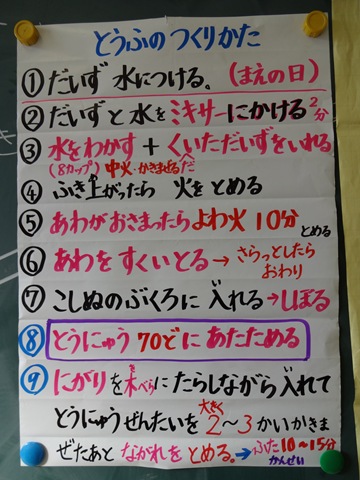 とうふの つくりかた
① だいず 水につける。(まえの日)
② だいずと水をミキサーにかける 2分
③ 水をわかす + くだいただいずをいれる
(8カップ) 中火・かきまぜる
④ ふき上がったら 火をとめる
⑤ あわがおさまったらよわ火10分 とめる
⑥ あわをすくいとる→ さらっとしたら
おわり
⑦ こしぬのぶくろに入れる→しぼる
⑧ とうにゅう 70どに あたためる
⑨ にがりを木べらにたらしながら入れて
とうにゅうぜんたいを大きく2〜3かいかきま
ぜたあと ながれをとめる。→ふた10〜15分
かんせい